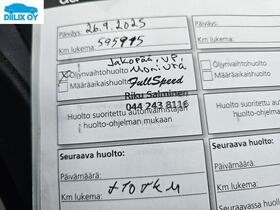 DIILIX OY
Päiväys: 26.9.2025
Km lukema: 595995
Jakopää, VP,
Öljynvaihtohuolto Monivra
Määräaikaishuolto Full Speed
Riku Salminen
044 243 8116
Huolto suoritettu autonvalmistajan
huolto-ohjelman mukaan
Seuraava huolto:
Päivämäärä:
Km lukema:
Päiväys:
Km lukema:
Öljynvaihtohuolto
Määräaikaishuolto
Huolto suorite
huolto-
Seuraava huolto:
Päivämäärä:
Km lukema: